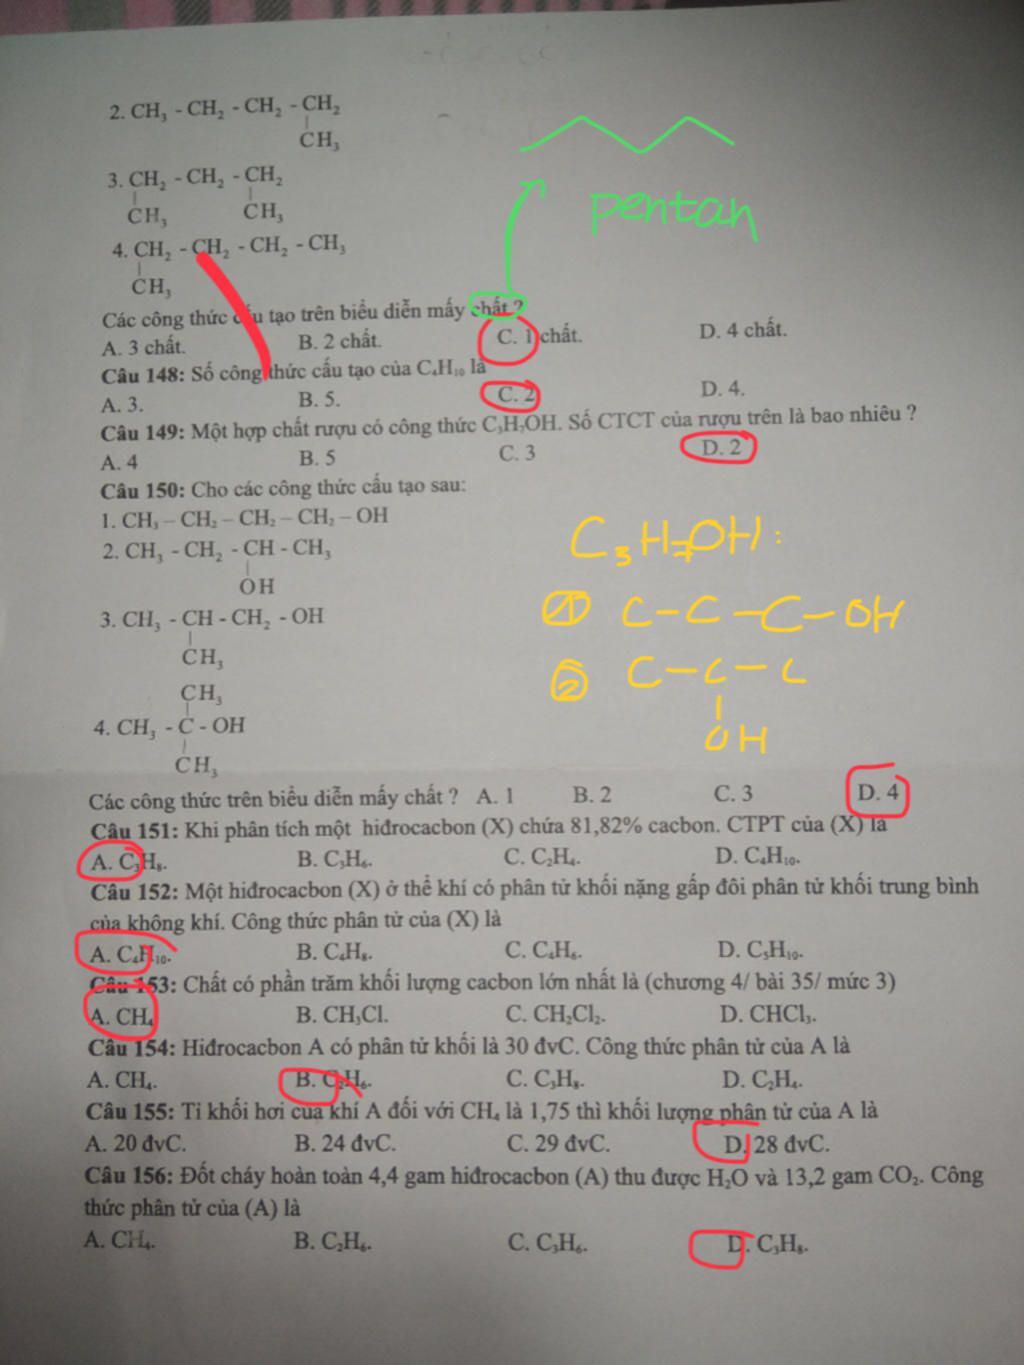 2. CH₃ - CH₂ - CH₂ - CH₂
|
CH₃
3. CH₂ - CH₂ - CH₂
| |
CH₃ CH₃
pentan
4. CH₂ - CH₂ - CH₂ - CH₃
|
CH₃
Các công thức cấu tạo trên biểu diễn mấy chất ?
A. 3 chất. B. 2 chất. C. 1 chất. D. 4 chất.
Câu 148: Số công thức cấu tạo của C₄H₁₀ là
A. 3. B. 5. C. 2 D. 4.
Câu 149: Một hợp chất rượu có công thức C₃H₇OH. Số CTCT của rượu trên là bao nhiêu ?
A. 4 B. 5 C. 3 D. 2
Câu 150: Cho các công thức cấu tạo sau:
1. CH₃ – CH₂ – CH₂ – CH₂ – OH
2. CH₃ - CH₂ - CH - CH₃
|
OH
C₃H₇OH:
3. CH₃ - CH - CH₂ - OH
|
CH₃
① C - C - C - OH
② C - C - C
|
OH
CH₃
|
4. CH₃ - C - OH
|
CH₃
Các công thức trên biểu diễn mấy chất ? A. 1 B. 2 C. 3 D. 4
Câu 151: Khi phân tích một hiđrocacbon (X) chứa 81,82% cacbon. CTPT của (X) là
A. C₃H₈. B. C₃H₆. C. C₂H₄. D. C₄H₁₀.
Câu 152: Một hiđrocacbon (X) ở thể khí có phân tử khối nặng gấp đôi phân tử khối trung bình
của không khí. Công thức phân tử của (X) là
A. C₄H₁₀. B. C₄H₈. C. C₄H₆. D. C₅H₁₀.
Câu 153: Chất có phần trăm khối lượng cacbon lớn nhất là (chương 4/ bài 35/ mức 3)
A. CH₄ B. CH₃Cl. C. CH₂Cl₂. D. CHCl₃.
Câu 154: Hiđrocacbon A có phân tử khối là 30 đvC. Công thức phân tử của A là
A. CH₄. B. C₂H₆. C. C₃H₈. D. C₂H₄.
Câu 155: Tỉ khối hơi của khí A đối với CH₄ là 1,75 thì khối lượng phân tử của A là
A. 20 đvC. B. 24 đvC. C. 29 đvC. D. 28 đvC.
Câu 156: Đốt cháy hoàn toàn 4,4 gam hiđrocacbon (A) thu được H₂O và 13,2 gam CO₂. Công
thức phân tử của (A) là
A. CH₄. B. C₂H₆. C. C₃H₆. D. C₃H₈.